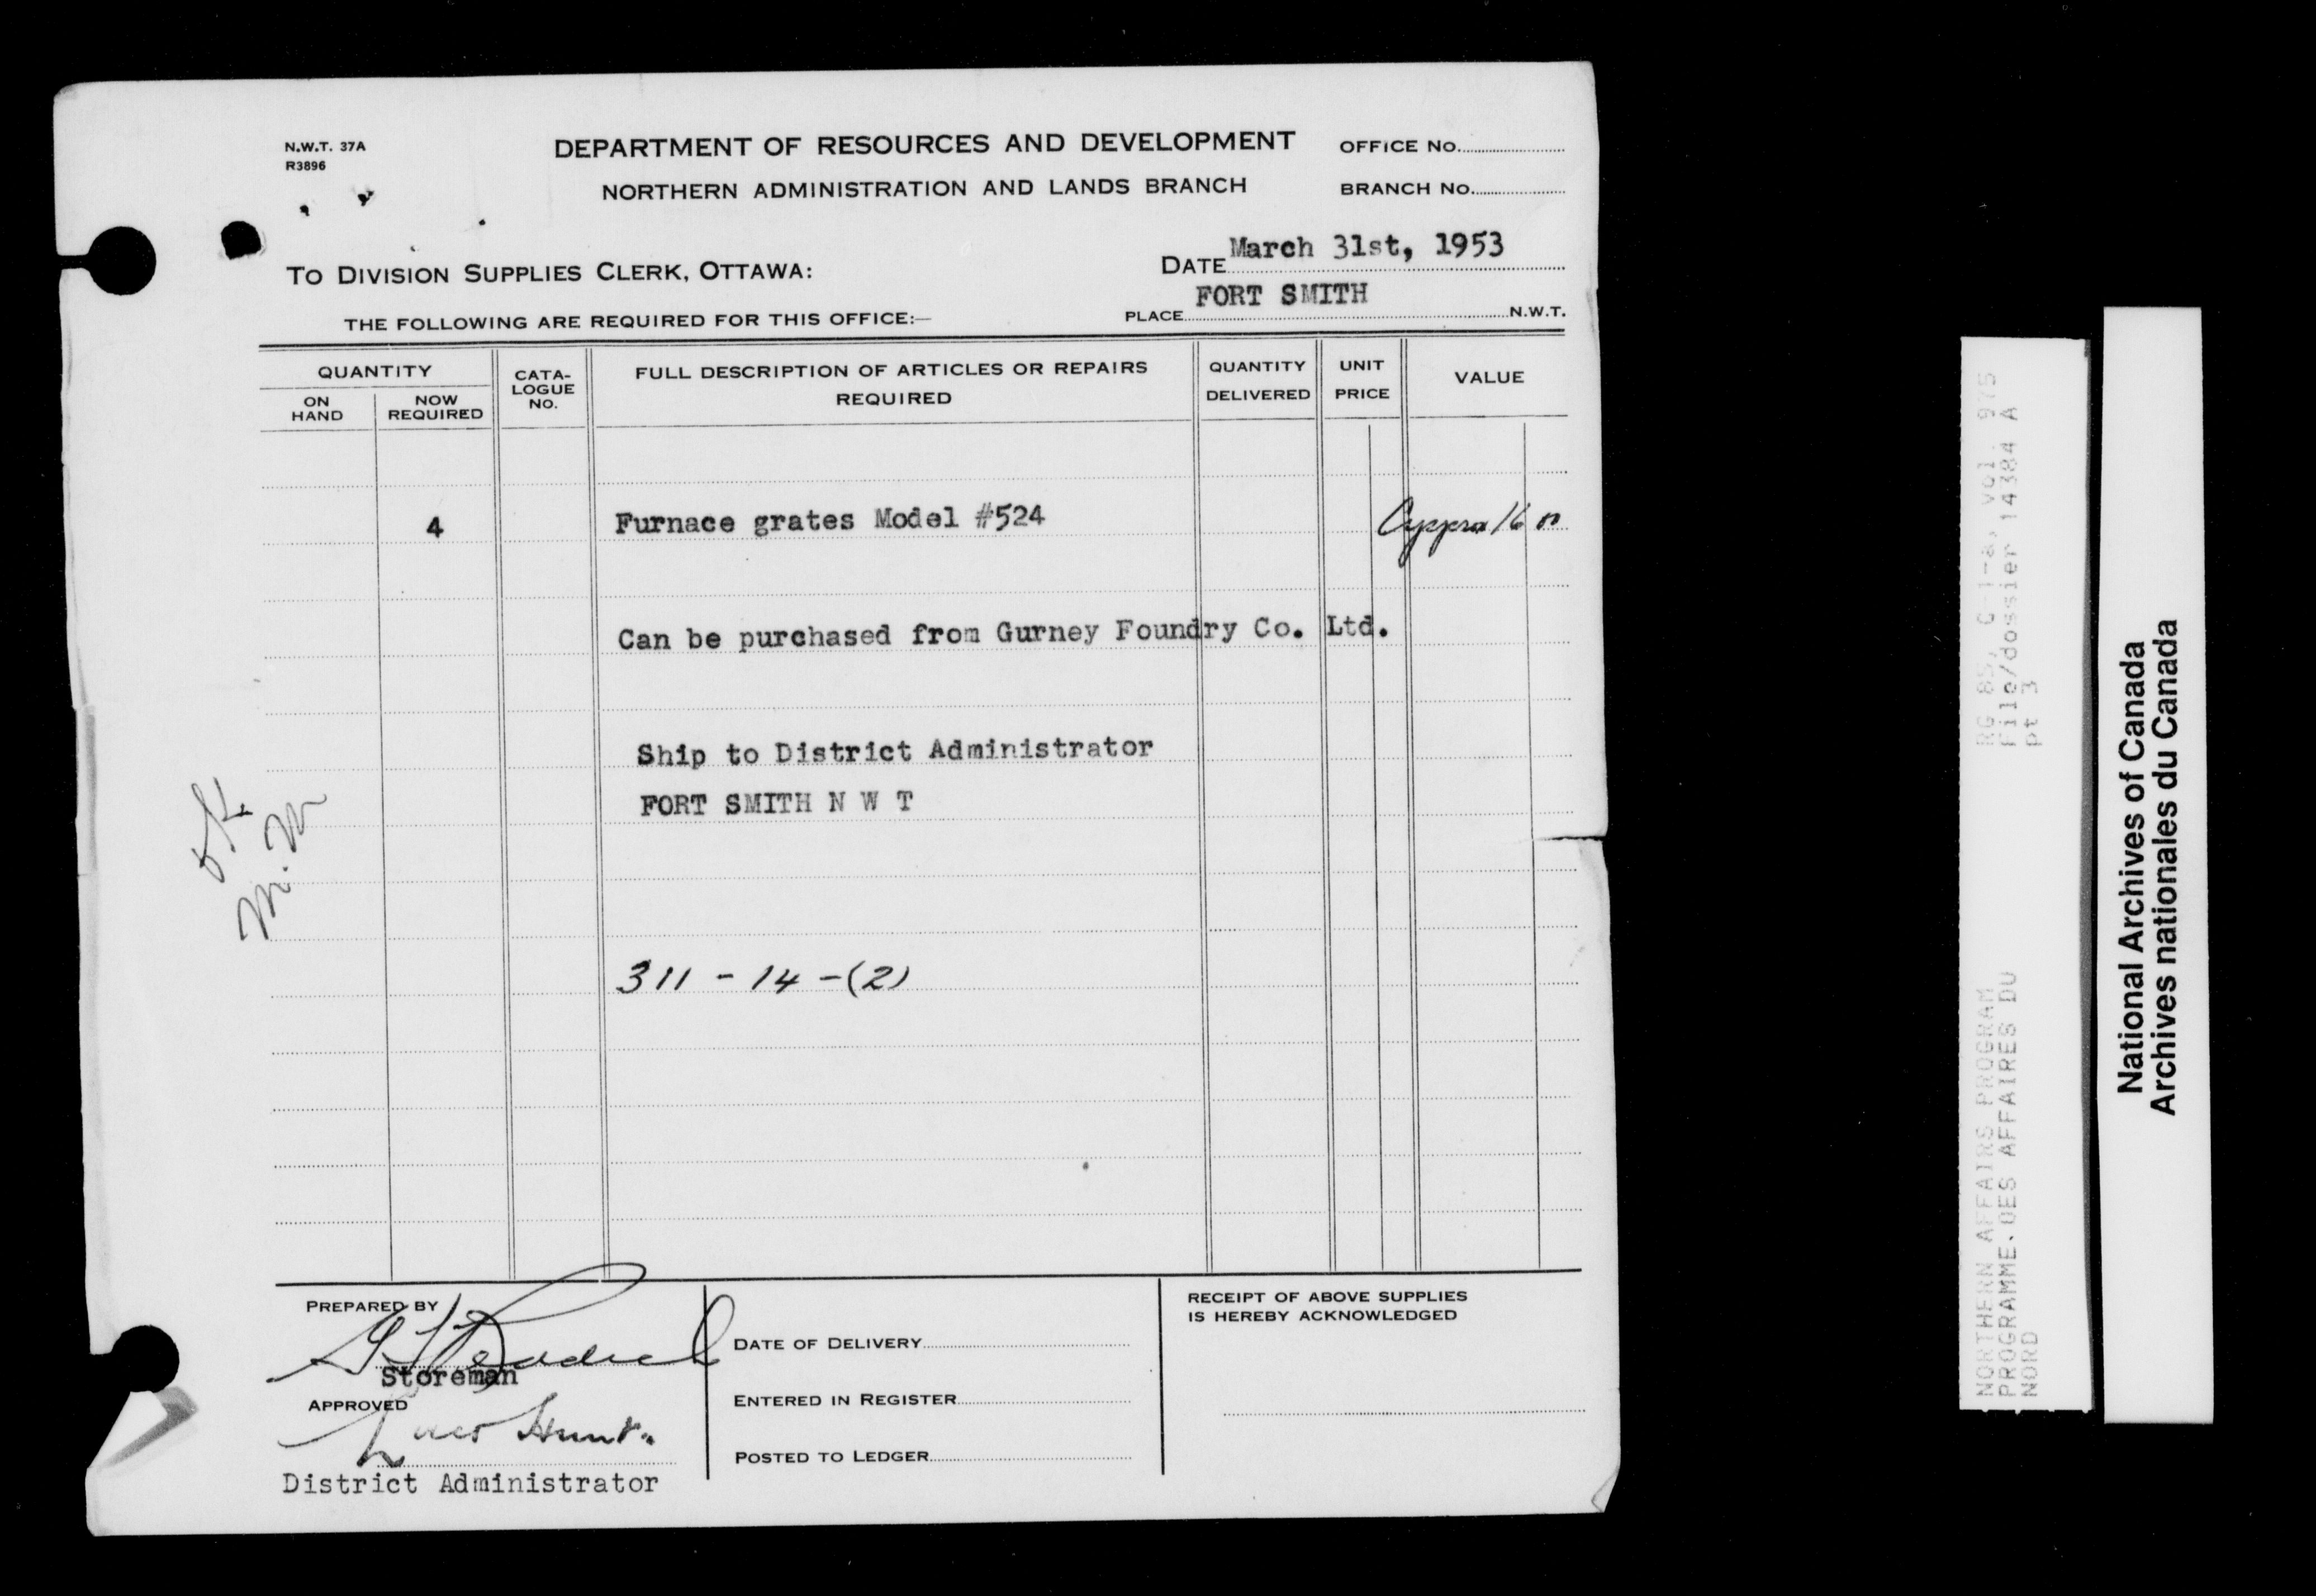 N.W.T. 37A
R3896
DEPARTMENT OF RESOURCES AND DEVELOPMENT
NORTHERN ADMINISTRATION AND LANDS BRANCH
OFFICE No.
BRANCH No.
TO DIVISION SUPPLIES CLERK, OTTAWA:
DATE March 31st, 1953
THE FOLLOWING ARE REQUIRED FOR THIS OFFICE:—
PLACE FORT SMITH N.W.T.
QUANTITY
ON HAND
NOW REQUIRED
CATA-
LOGUE
NO.
FULL DESCRIPTION OF ARTICLES OR REPAIRS
REQUIRED
QUANTITY
DELIVERED
UNIT
PRICE
VALUE
4 Furnace grates Model #524 Approx 16
Can be purchased from Gurney Foundry Co. Ltd.
Ship to District Administrator
FORT SMITH N W T
OK
M.M
311 - 14 - (2)
PREPARED BY
Storeman
APPROVED
Hunt.
District Administrator
DATE OF DELIVERY
ENTERED IN REGISTER
POSTED TO LEDGER
RECEIPT OF ABOVE SUPPLIES
IS HEREBY ACKNOWLEDGED
RG 85, C-1-a, vol. 975
File/dossier 14384 A
pt 3
NORTHERN AFFAIRS PROGRAM
PROGRAMME DES AFFAIRES DU
NORD
National Archives of Canada
Archives nationales du Canada